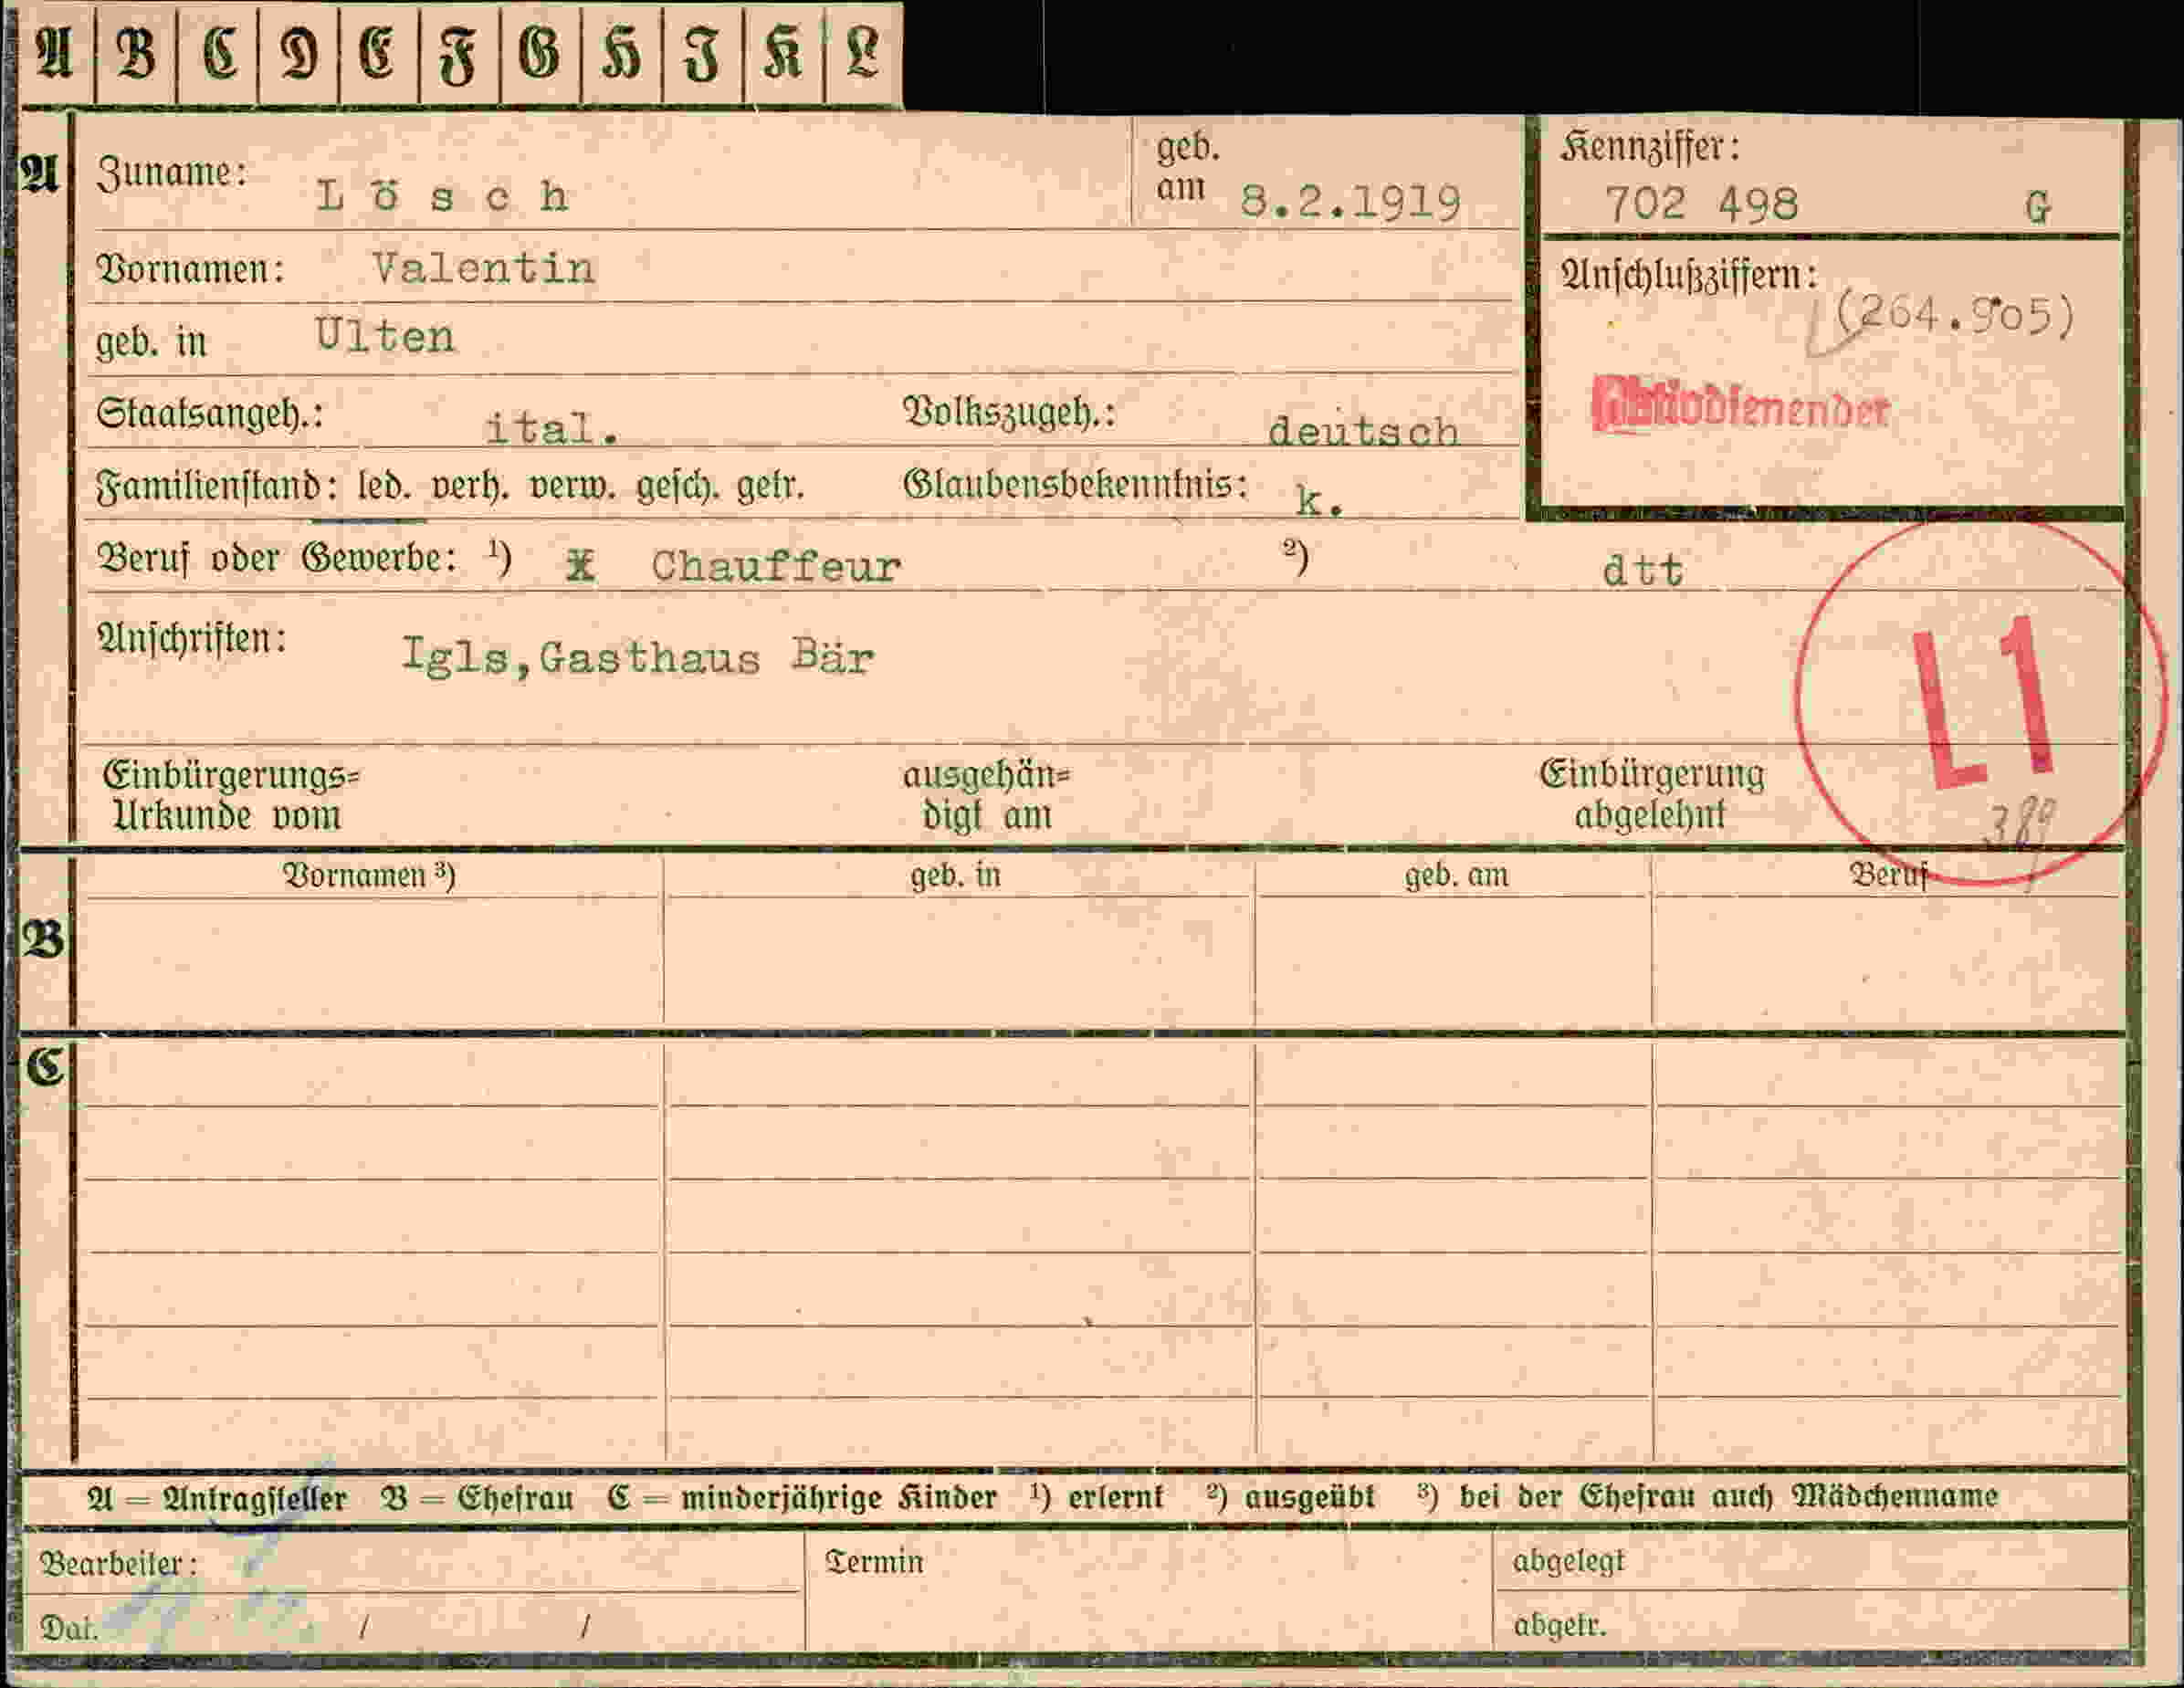 A B C D E F G H J K L
A Zuname: Lösch geb. am 8.2.1919
Kennziffer: 702 498 G
Vornamen: Valentin
geb. in Ulten
Anschlußziffern: (264.905)
Aktivdienender
Staatsangeh.: ital. Volkszugeh.: deutsch
Familienstand: led. verh. verw. gesch. getr. Glaubensbekenntnis: k.
Beruf oder Gewerbe: ¹) x Chauffeur ²) dtt
Anschriften: Igls,Gasthaus Bär
L1
389
Einbürgerungs=
Urkunde vom
ausgehän=
digt am
Einbürgerung
abgelehnt
Vornamen ³) geb. in geb. am Beruf
B
C
A = Antragsteller B = Ehefrau C = minderjährige Kinder ¹) erlernt ²) ausgeübt ³) bei der Ehefrau auch Mädchenname
Bearbeiter: Termin abgelegt
Dat. / / abgetr.